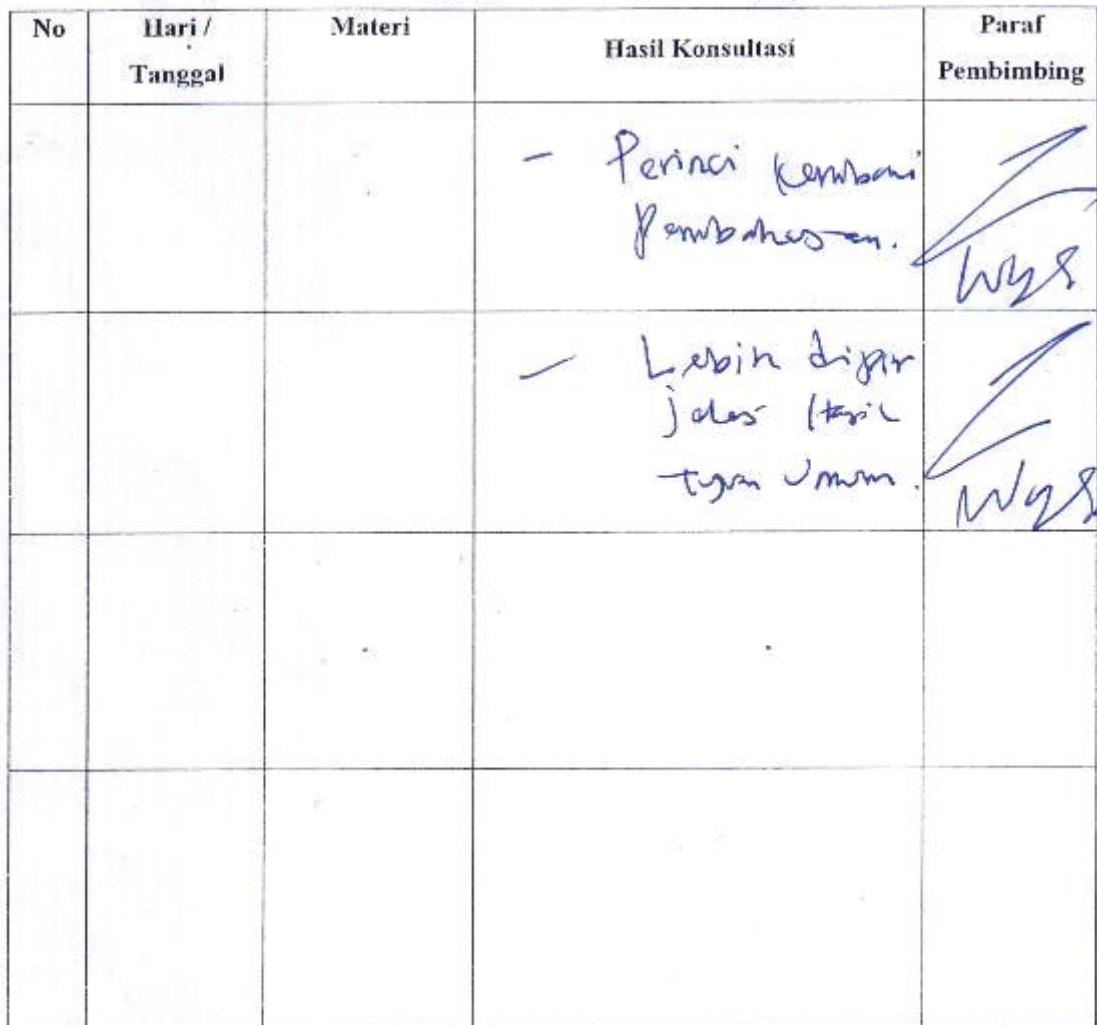 No Hari / Tanggal Materi Hasil Konsultasi Paraf Pembimbing
- Perinci kembali
Pembahasan.
- Lebih
jelas Hasil
tujuan Umum.